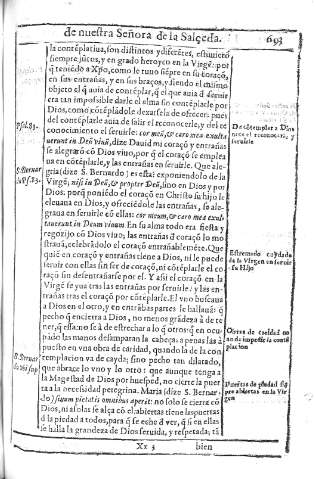 de nuestra Señora de la Salçeda. 693
la contẽplatiua, son distinctos y diferẽtes, estuuierõ
siempre jũtos, y en grado heroyco en la Virgẽ: por
q̃ teniẽdo a Xpo, como le tuuo siẽpre en su coraçõ,
en sus entrañas, y en sus braços, y siendo el mismo
objeto el q̃ auia de contẽplar, q̃ el que auia d̃ seruir
era tan impossible darle el alma sin contẽplarle por
Dios, como cõtẽplãdole dexarsela de ofrecer: pues
del contẽplarle auia de salir el reconocerle, y del re
conocimiento el seruirle: cor meũ, & caro mea exulta
uerunt in Deũ viuũ, dize Dauid mi coraçõ y entrañas
se alegrarõ cõ Dios viuo, por q̃ el coraçõ se emplea
ua en cõtẽplarle, y las entrañas en seruirle. Que ale-
gria (dize S. Bernardo) es esta: exponiendolo de la
Virgẽ, nisi in Deũ, & propter Deũ, sino en Dios y por
Dios: porq̃ poniẽdo el coraçõ en Christo su hijo le
eleuaua en Dios, y ofreciẽdole las entrañas, se ale-
graua en seruirle cõ ellas: cor meum, & caro mea exul-
tauerunt in Deum viuum. En su alma todo era fiesta y
regozijo cõ Dios viuo; las entrañas d̃ coraçõ lo mo
strauã, celebrãdolo el coraçõ entrañablemẽte. Que
quiẽ en coraçõ y entrañas tiene a Dios, ni le puede
seruir con ellas sin ser de coraçõ, ni cõtẽplarle el co
raçõ sin desentrañarse por el. Y assi el coraçõ en la
Virgẽ se yua tras las entrañas por seruirle: y las en-
trañas tras el coraçõ por cõtẽplarle. El vno buscaua
a Dios en el otro, y en entrãbas partes le hallaua: q̃
pecho q̃ encierra a Dios, no menos grãdeza à de te
ner, q̃ esta: no se à de estrechar a lo q̃ otros: q̃ en ocu-
pãdo las manos desamparan la cabeça: apenas las à
puesto en vna obra de caridad, quando la de la con
templacion va de cayda; sino pecho tan dilatado,
que abrace lo vno y lo otro: que aunque tenga a
la Magestad de Dios por huesped, no cierre la puer
ta a la necesidad peregrina. Maria (dize S. Bernar-
do) sinum pietatis omnibus aperit: no solo se cierre cõ
Dios, ni a solas se alça cõ el: abiertas tiene las puertas
d̃ la piedad a todos, para q̃ se eche d̃ ver, q̃ si en ellas
se halla la grandeza de Dios seruida, y respetada, tã
Xx 3 bien
Psal. 83.
S. Bernar
in Psal. 83.
S. Bernar
De cõtemplar a Dios
nace el reconocerle, y
seruirle
Estremado cuydado
de la Virgen en seruir
a su Hijo
Obras de caridad no
an de impedir la contẽ
placion
Puertas de piedad siẽ
pre abiertas en la Vir
gen